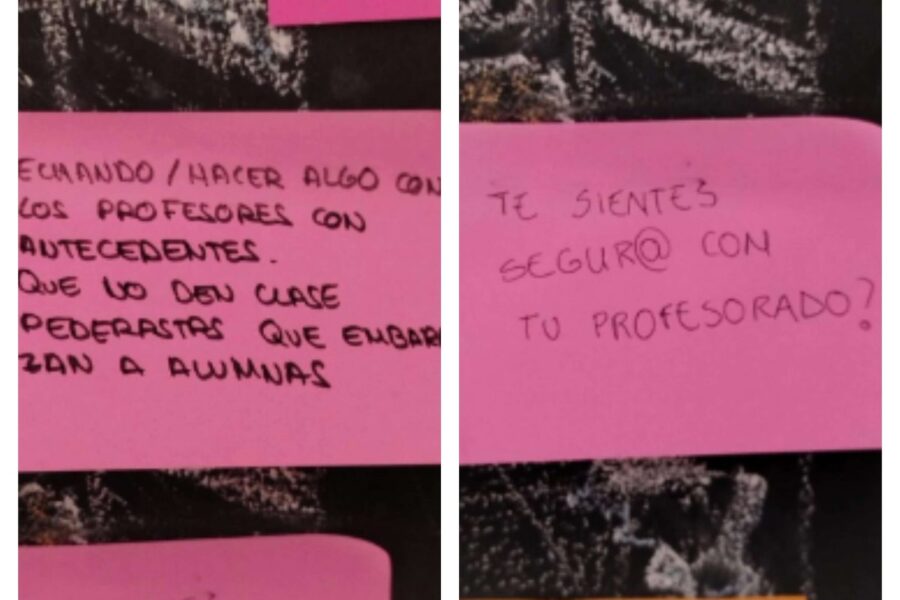 ECHANDO / HACER ALGO CON
LOS PROFESORES CON
ANTECEDENTES.
QUE NO DEN CLASE
PEDERASTAS QUE EMBAR
ZAN A ALUMNAS
TE SIENTES
SEGUR@ CON
TU PROFESORADO?